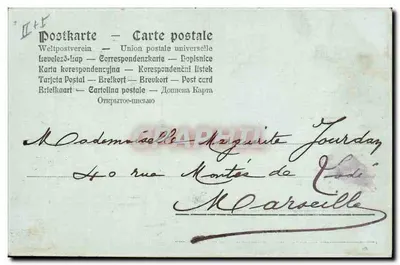 II + 5
Postkarte — Carte postale
Weltpostverein — Union postale universelle
Levelező-Lap — Correspondenzkarte — Dopisnice
Karta korespondencyjna — Korespondenční lístek
Tarjeta Postal — Brefkort — Brevkort — Post card
Briefkaart — Cartolina postale — Дописна Карта
Открытое письмо
Mademoiselle Marguerite Jourdan
40 rue Montée de
Marseille